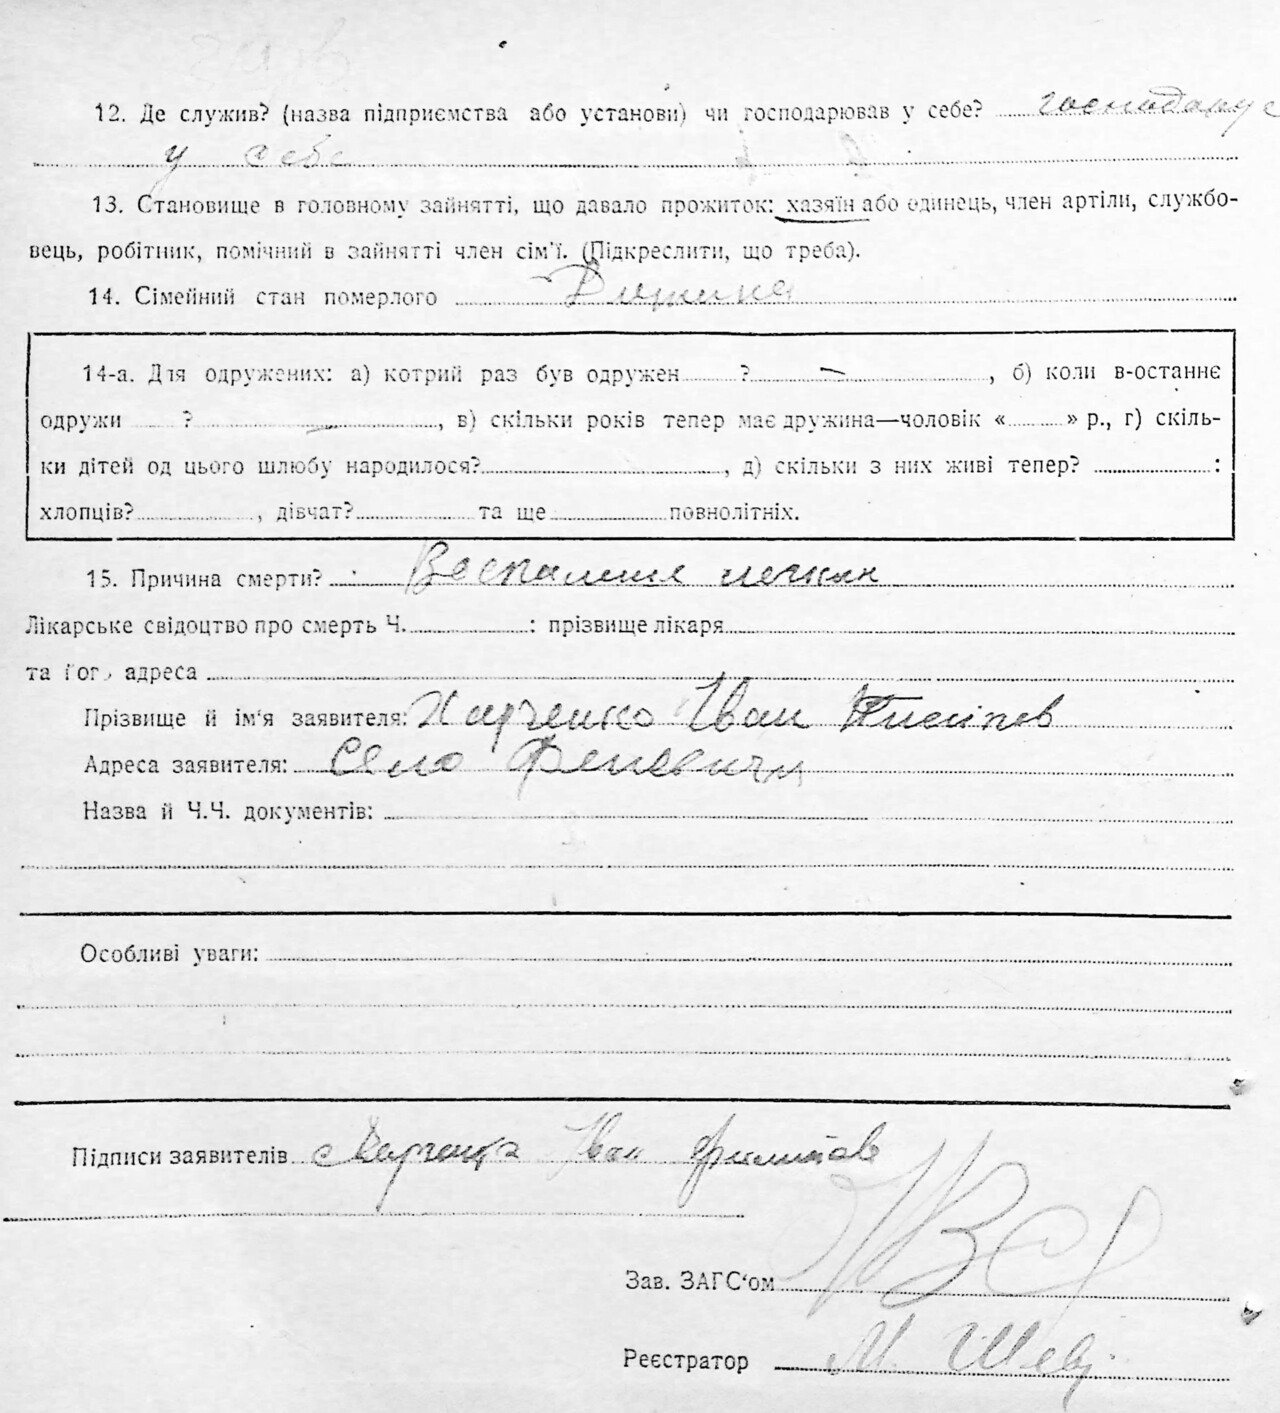 12. Де служив? (назва підприємства або установи) чи господарював у себе? господарує
у себе
13. Становище в головному зайнятті, що давало прожиток: хазяїн або одинець, член артіли, службо-
вець, робітник, помічний в зайнятті член сім'ї. (Підкреслити, що треба).
14. Сімейний стан померлого Дитина
14-а. Для одружених: а) котрий раз був одружен ? — , б) коли в-останнє
одружи ? — , в) скільки років тепер має дружина—чоловік « » р., г) скіль-
ки дітей од цього шлюбу народилося? , д) скільки з них живі тепер? :
хлопців? , дівчат? та ще повнолітніх.
15. Причина смерти? Воспаление легких
Лікарське свідоцтво про смерть Ч. : прізвище лікаря
та його адреса
Прізвище й ім'я заявителя: Харченко Іван
Адреса заявителя: Село Феневичи
Назва й Ч.Ч. документів:
Особливі уваги:
Підписи заявителів Харченко Іван Филипов
Зав. ЗАГС'ом
Реєстратор М. Шевч